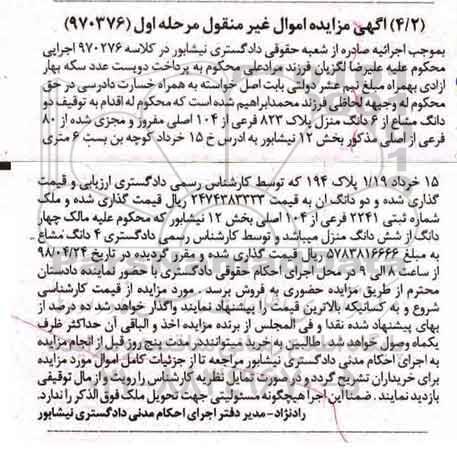 (۴/۲) آگهی مزایده اموال غیر منقول مرحله اول (۹۷۰۳۷۶)
بموجب اجرائیه صادره از شعبه حقوقی دادگستری نیشابور در کلاسه ۹۷۰۲۷۶ اجرایی
محکوم علیه علیرضا لگزیان فرزند مرادعلی محکوم به پرداخت دویست عدد سکه بهار
ازادی بهمراه مبلغ نیم عشر دولتی بابت اصل خواسته به همراه خسارت دادرسی در حق
محکوم له وجیهه لحاظی فرزند محمدابراهیم شده است که محکوم له اقدام به توقیف دو
دانگ مشاع از ۶ دانگ منزل پلاک ۸۲۳ فرعی از ۱۰۴ اصلی مفروز و مجزی شده از ۸۰
فرعی از اصلی مذکور بخش ۱۲ نیشابور به ادرس خ ۱۵ خرداد کوچه بن بست ۶ متری
۱۵ خرداد ۱/۱۹ پلاک ۱۹۴ که توسط کارشناس رسمی دادگستری ارزیابی و قیمت
گذاری شده و دو دانگ ان به قیمت ۲۴۷۴۳۸۳۳۳۳ ریال قیمت گذاری شده و ملک
شماره ثبتی ۲۲۴۱ فرعی از ۱۰۴ اصلی بخش ۱۲ نیشابور که محکوم علیه مالک چهار
دانگ از شش دانگ منزل میباشد و توسط کارشناس رسمی دادگستری ۴ دانگ مشاع
به مبلغ ۵۷۸۳۸۱۶۶۶۶ ریال قیمت گذاری شده و مقرر گردیده در تاریخ ۹۸/۰۴/۲۴
از ساعت ۸ الی ۹ در محل اجرای احکام حقوقی دادگستری با حضور نماینده دادستان
محترم از طریق مزایده حضوری به فروش برسد . مورد مزایده از قیمت کارشناسی
شروع و به کسانیکه بالاترین قیمت را پیشنهاد نمایند واگذار خواهد شد ده درصد از
بهای پیشنهاد شده نقدا و فی المجلس از برنده مزایده اخذ و الباقی آن حداکثر ظرف
یکماه وصول خواهد شد . طالبین به خرید میتوانند در مدت پنج روز قبل از انجام مزایده
به اجرای احکام مدنی دادگستری نیشابور مراجعه تا از جزئیات کامل اموال مورد مزایده
برای خریداران تشریح گردد و در صورت تمایل نظریه کارشناس را رویت و از مال توقیفی
بازدید نمایند . ضمنا این اجرا هیچگونه مسئولیتی جهت تحویل ملک فوق الذکر را ندارد.
رادنژاد - مدیر دفتر اجرای احکام مدنی دادگستری نیشابور